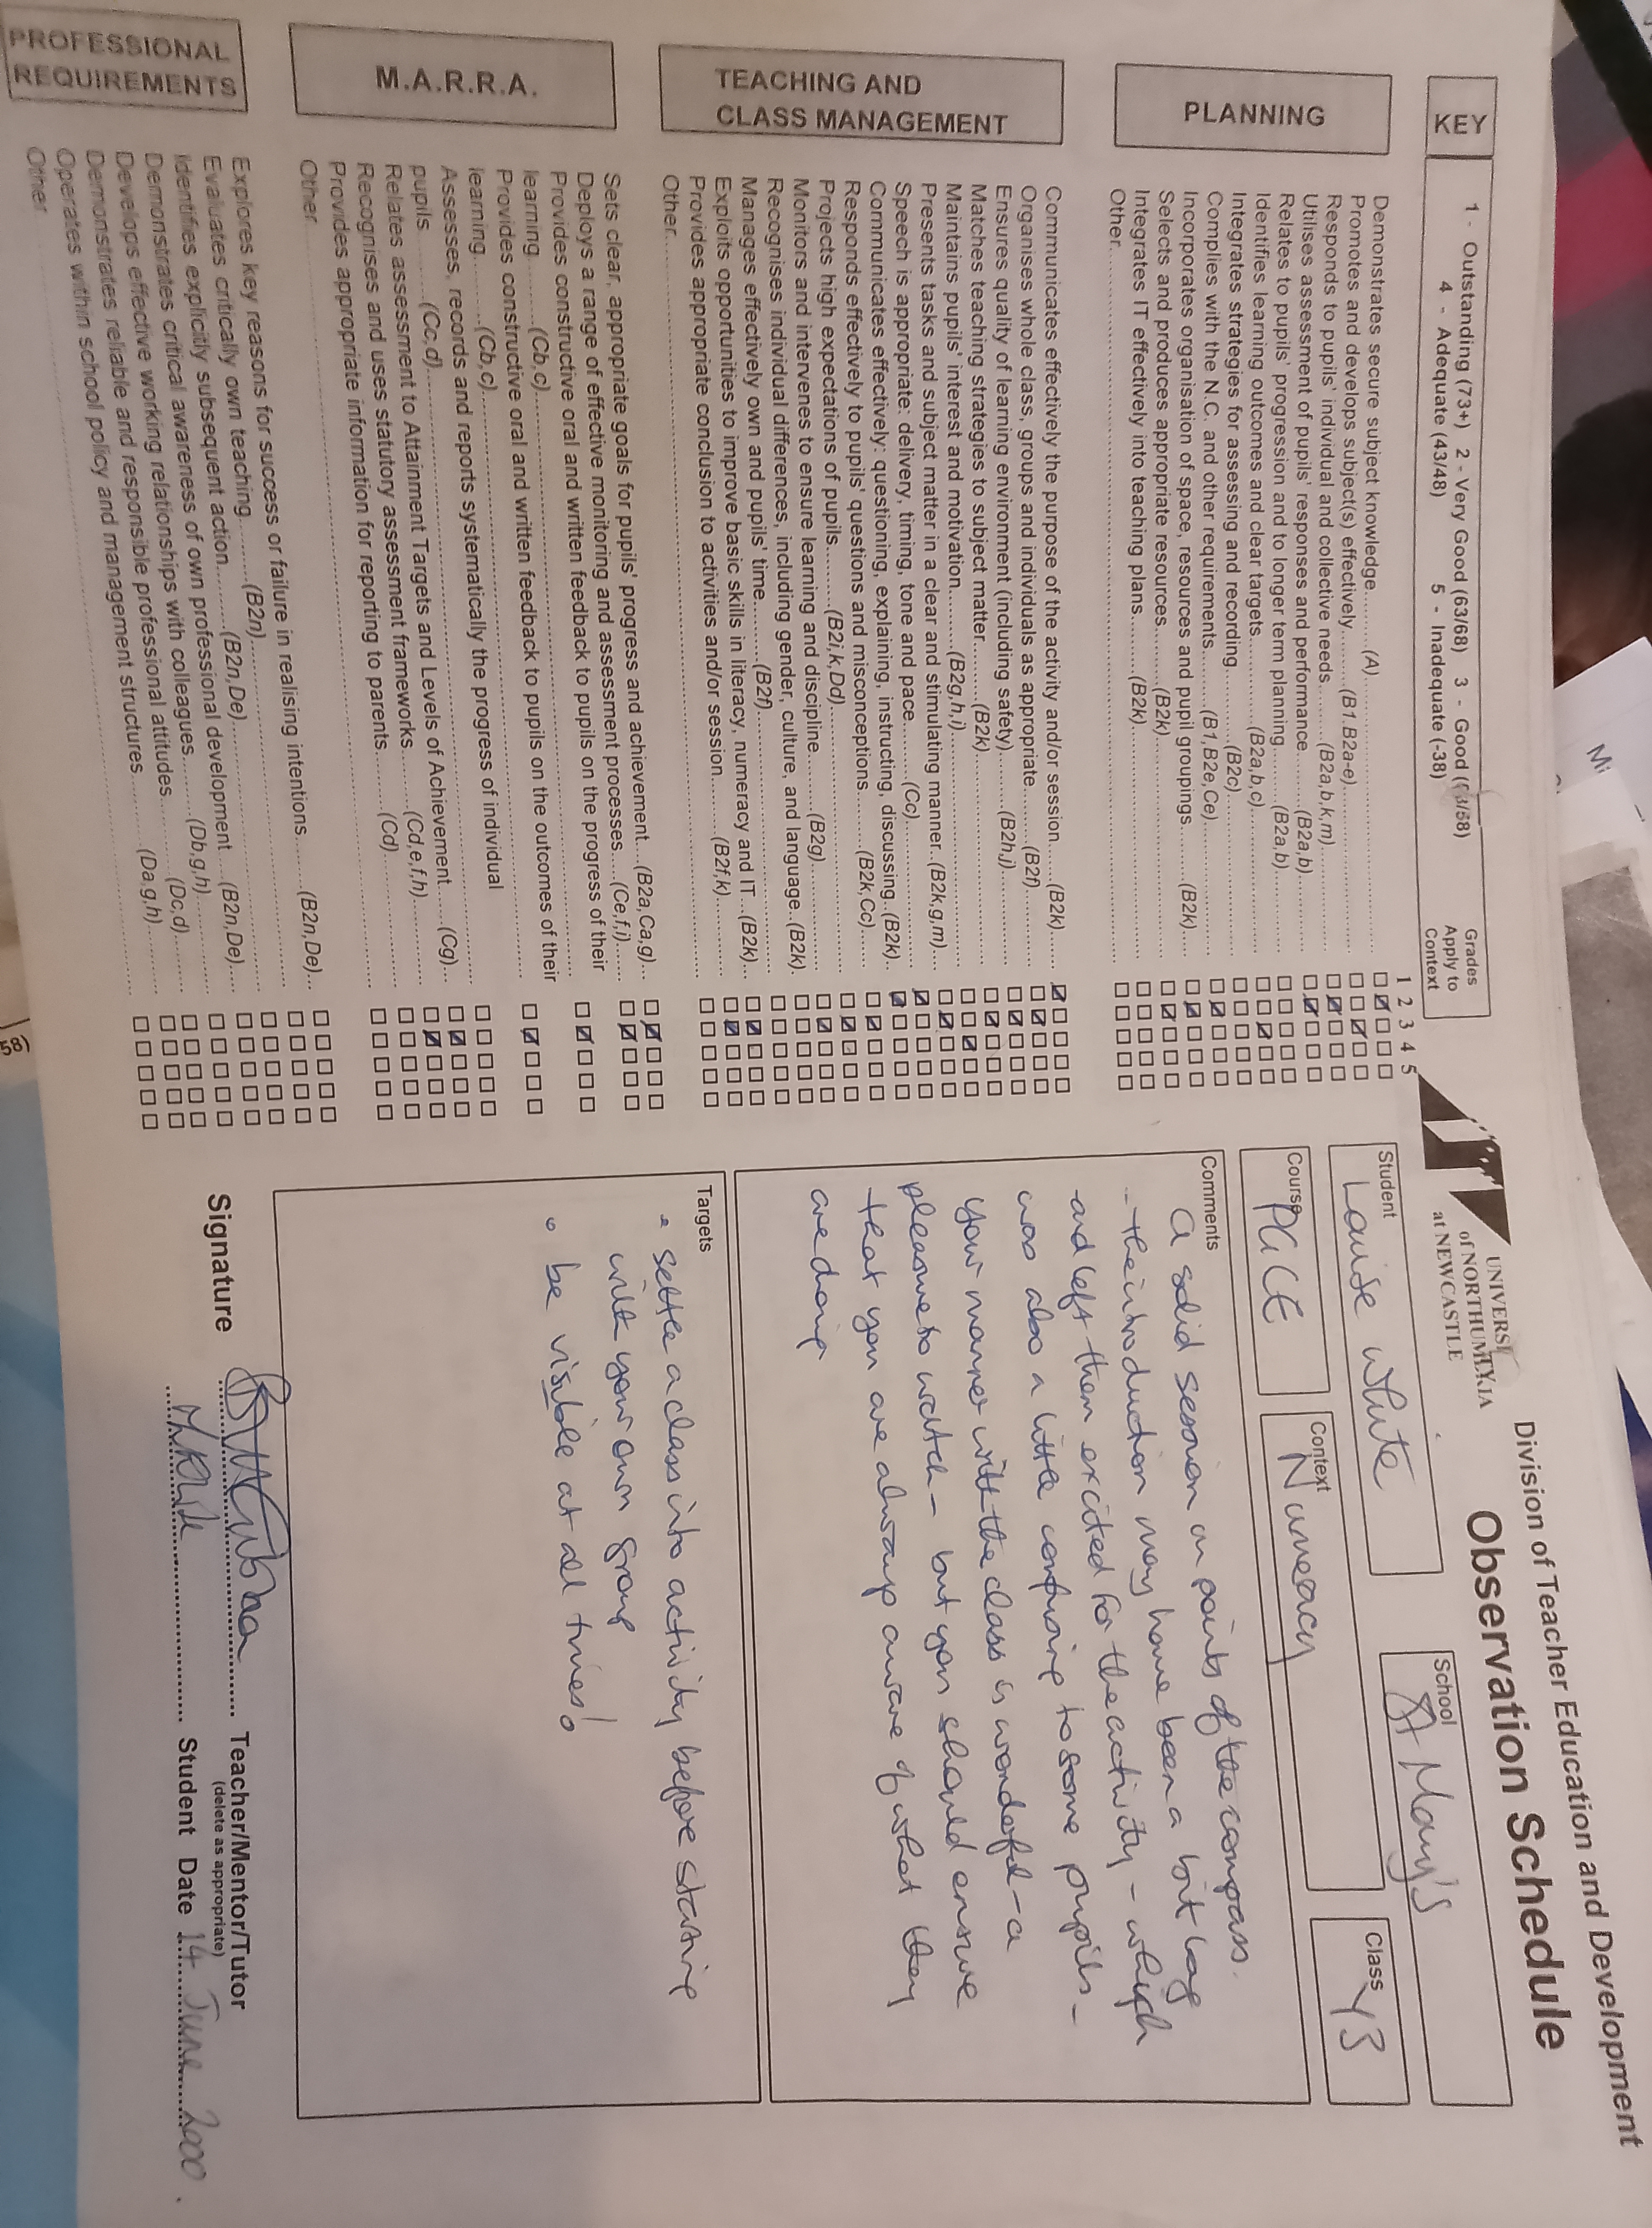 Division of Teacher Education and Development
Observation Schedule
UNIVERSI
of NORTHUM
at NEWCASTLE
KEY
1 - Outstanding (73+) 2 - Very Good (63/68) 3 - Good (
4 - Adequate (43/48) 5 - Inadequate (-38)
Grades
Apply to
Context
1 2 3 4 5
PLANNING
Demonstrates secure subject knowledge.......(A)
Promotes and develops subject(s) effectively.......(B1.B2a-e)
Responds to pupils' individual and collective needs.......(B2a,b,k,m)
Utilises assessment of pupils' responses and performance.......(B2a,b)
Relates to pupils' progression and to longer term planning.......(B2a,b)
Identifies learning outcomes and clear targets.......(B2a,b,c)
Integrates strategies for assessing and recording.......(B2c)
Complies with the N.C. and other requirements.......(B1,B2e,Ce)
Incorporates organisation of space, resources and pupil groupings.......(B2k)
Selects and produces appropriate resources.......(B2k)
Integrates IT effectively into teaching plans.......(B2k)
Other
TEACHING AND
CLASS MANAGEMENT
Communicates effectively the purpose of the activity and/or session.....(B2k)
Organises whole class, groups and individuals as appropriate.......(B2f)
Ensures quality of learning environment (including safety).......(B2h,j)
Matches teaching strategies to subject matter.......(B2k)
Maintains pupils' interest and motivation.......(B2g,h,i)
Presents tasks and subject matter in a clear and stimulating manner..(B2k,g,m)
Speech is appropriate: delivery, timing, tone and pace.......(Cc)
Communicates effectively: questioning, explaining, instructing, discussing..(B2k)
Responds effectively to pupils' questions and misconceptions.......(B2k,Cc)
Projects high expectations of pupils.......(B2i,k,Dd)
Monitors and intervenes to ensure learning and discipline.......(B2g)
Recognises individual differences, including gender, culture, and language..(B2k)
Manages effectively own and pupils' time.......(B2f)
Exploits opportunities to improve basic skills in literacy, numeracy and IT...(B2k)
Provides appropriate conclusion to activities and/or session.......(B2f,k)
Other
M.A.R.R.A.
Sets clear, appropriate goals for pupils' progress and achievement...(B2a,Ca,g)
Deploys a range of effective monitoring and assessment processes....(Ce,f,i)
Provides constructive oral and written feedback to pupils on the progress of their
learning.......(Cb,c)
Provides constructive oral and written feedback to pupils on the outcomes of their
learning.......(Cb,c)
Assesses, records and reports systematically the progress of individual
pupils.......(Cc,d)
Relates assessment to Attainment Targets and Levels of Achievement.......(Cg)
Recognises and uses statutory assessment frameworks.......(Cd,e,f,h)
Provides appropriate information for reporting to parents.......(Cd)
Other
PROFESSIONAL
REQUIREMENTS
Explores key reasons for success or failure in realising intentions.......(B2n,De)
Evaluates critically own teaching.......(B2n)
Identifies explicitly subsequent action.......(B2n,De)
Demonstrates critical awareness of own professional development...(B2n,De)
Develops effective working relationships with colleagues.......(Db,g,h)
Demonstrates reliable and responsible professional attitudes.......(Dc,d)
Operates within school policy and management structures.......(Da,g,h)
Other
Student Louise White
School St Mary's
Course PGCE
Context Numeracy
Class Y3
Comments
A solid session on points of the compass.
- the introduction may have been a bit long
and left them excited for the activity - which
was also a little confusing to some pupils -
Your manner with the class is wonderful - a
pleasure to watch - but you should ensure
that you are always aware of what they
are doing
Targets
• settle a class into activity before starting
with your own group
• be visible at all times!
Signature Teacher/Mentor/Tutor
(delete as appropriate)
Student Date 14 June 2000.
58)